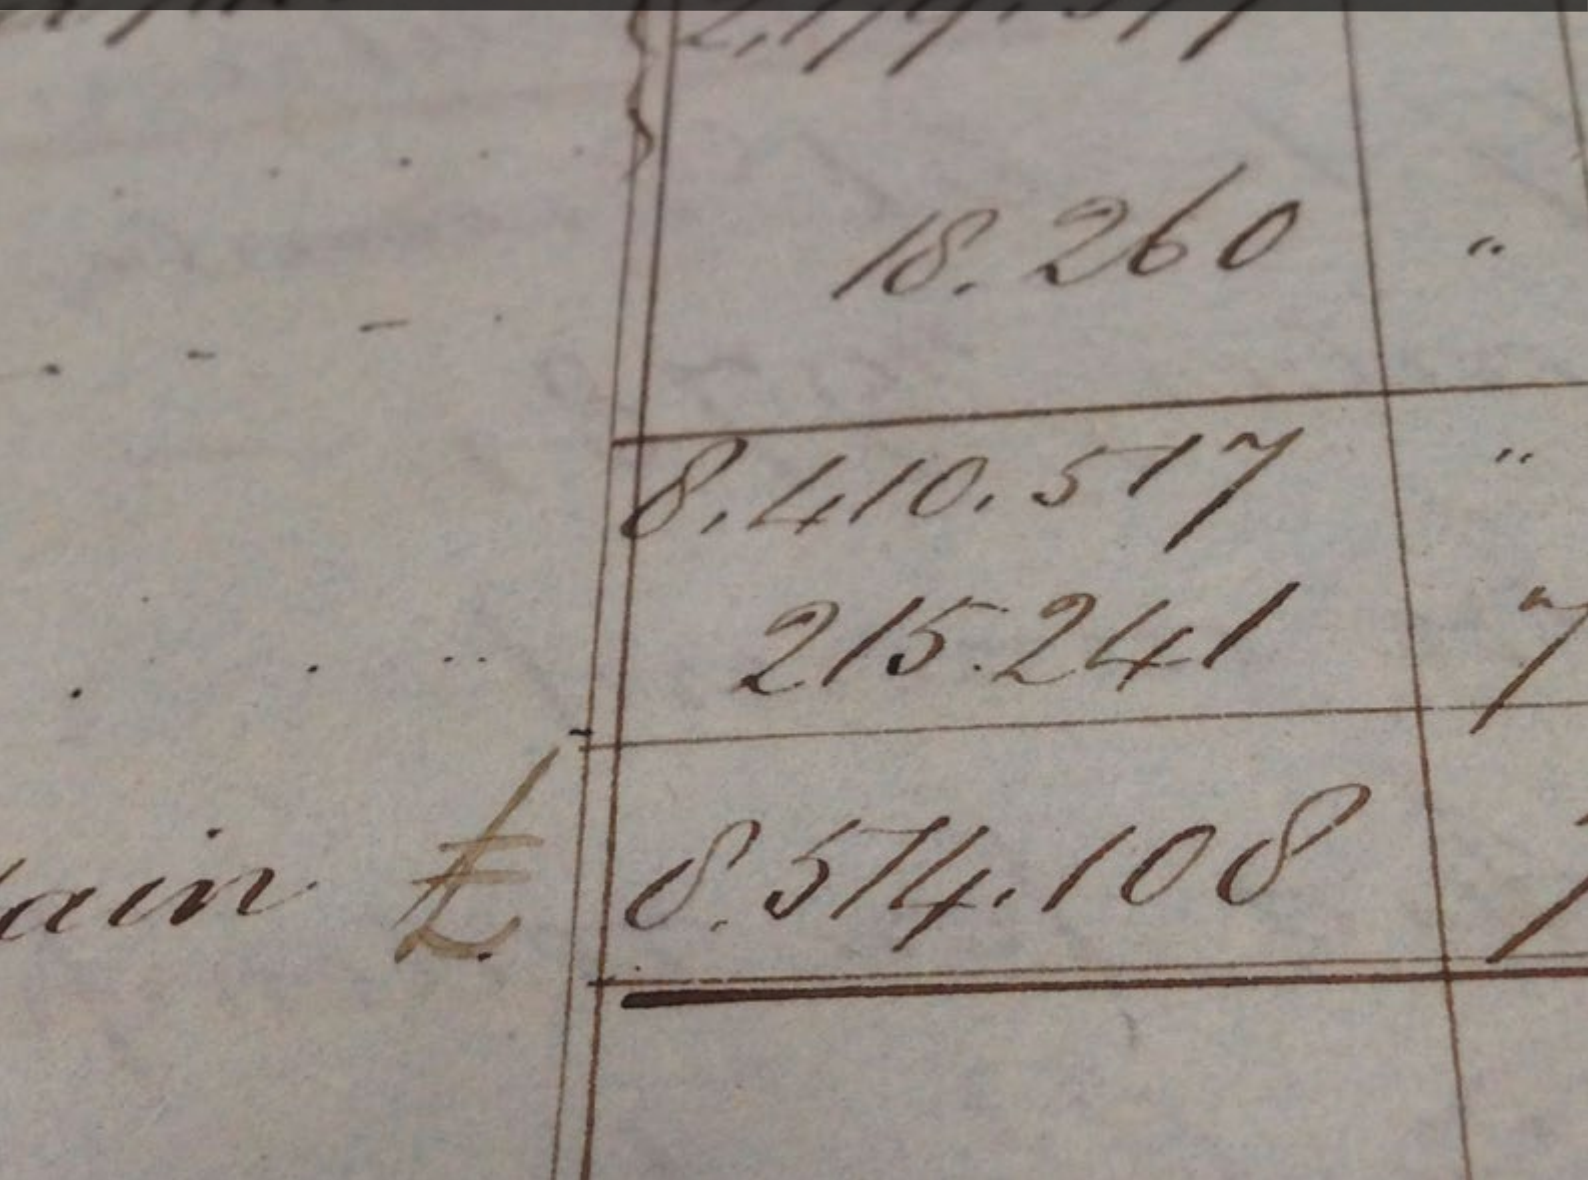 18.260 "
8,410.517 "
215.241 7
tain £ 8.514.108